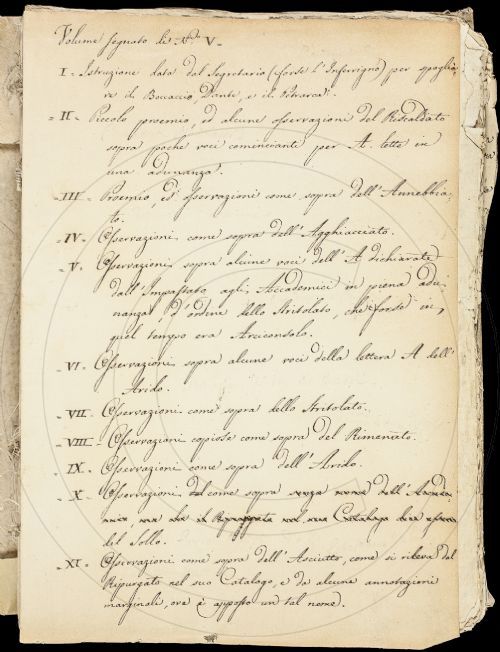 Volume segnato di N.° V.
I - Istruzione data dal Segretario (forse l'Inferrigno) per spoglia-
re il Boccaccio, Dante, e il Petrarca.
II - Piccolo proemio, ed alcune osservazioni del Riscaldato
sopra poche voci cominciante per A. lette in
una adunanza.
III - Proemio, ed osservazioni come sopra dell'Annebbia-
to.
IV - Osservazioni come sopra dell'Agghiacciato.
V - Osservazioni sopra alcune voci dell'A dichiarate
dall'Impastato agli Accademici in piena adu-
nanza, d'ordine dello Stritolato, che forse in
quel tempo era Arciconsolo.
VI - Osservazioni sopra alcune voci della lettera A dell'
Arido.
VII - Osservazioni come sopra dello Stritolato.
VIII - Osservazioni copiose come sopra del Rimenato.
IX - Osservazioni come sopra dell'Arido.
X - Osservazioni come sopra senza nome dell'
ma da il Ripurgato nel suo Catalogo
del Sollo.
XI - Osservazioni come sopra dell'Asciutto, come si rileva dal
Ripurgato nel suo Catalogo, e da alcune annotazioni
marginali, ove è apposto un tal nome.